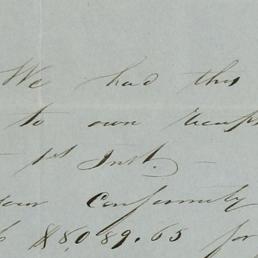 We had this
to own
1st Inst.
your Conformity
$8,089.65 for